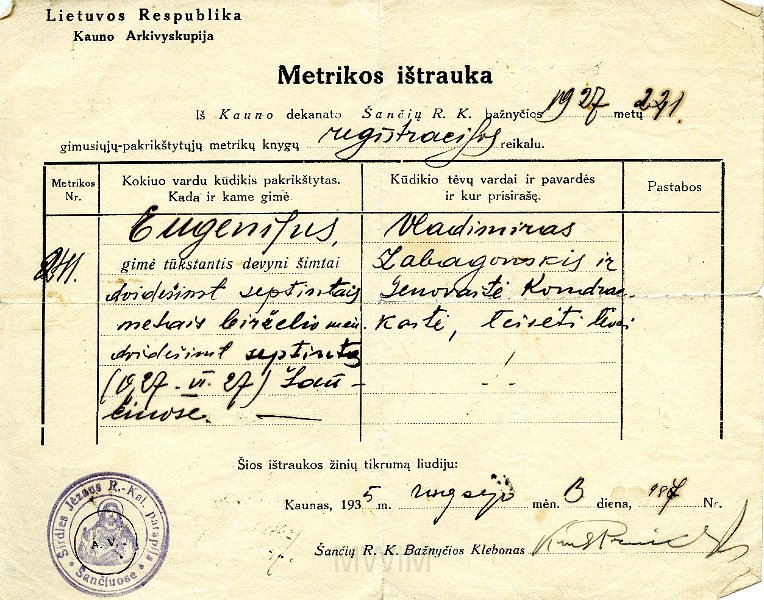 Lietuvos Respublika
Kauno Arkivyskupija
Metrikos ištrauka
Iš Kauno dekanato Šančių R. K. bažnyčios 1927 metų
gimusiųjų-pakrikštytųjų metrikų knygų registracijos reikalu.
Metrikos Nr.
Kokiuo vardu kūdikis pakrikštytas.
Kada ir kame gimė
Kūdikio tėvų vardai ir pavardės
ir kur prisirašę.
Pastabos
241.
Eugenijus,
gimė tūkstantis devyni šimtai
dvidešimt septintais
metais birželio mėn.
dvidešimt septintą
(1927-VI-27) Šan-
čiuose.
Vladimiras
Zabagonskis ir
Genovaitė Kondrac-
kaitė, teisėti tėvai
Šios ištraukos žinių tikrumą liudiju:
Kaunas, 1935 m. rugsėjo mėn. diena, Nr.
Šančių R. K. Bažnyčios Klebonas
Širdies Jėzaus R.-Kat. parapija
A. V.
Šančiuose
MWIM